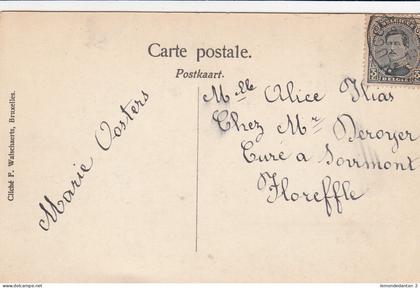 Carte postale.
Postkaart.
Cliché F. Walschaerts, Bruxelles.
Marie Oosters
Melle Alice Ilias
Chez Mr Deroyer
Curé a Sovimont
Floreffe
BELGIE
lemondedantan 2